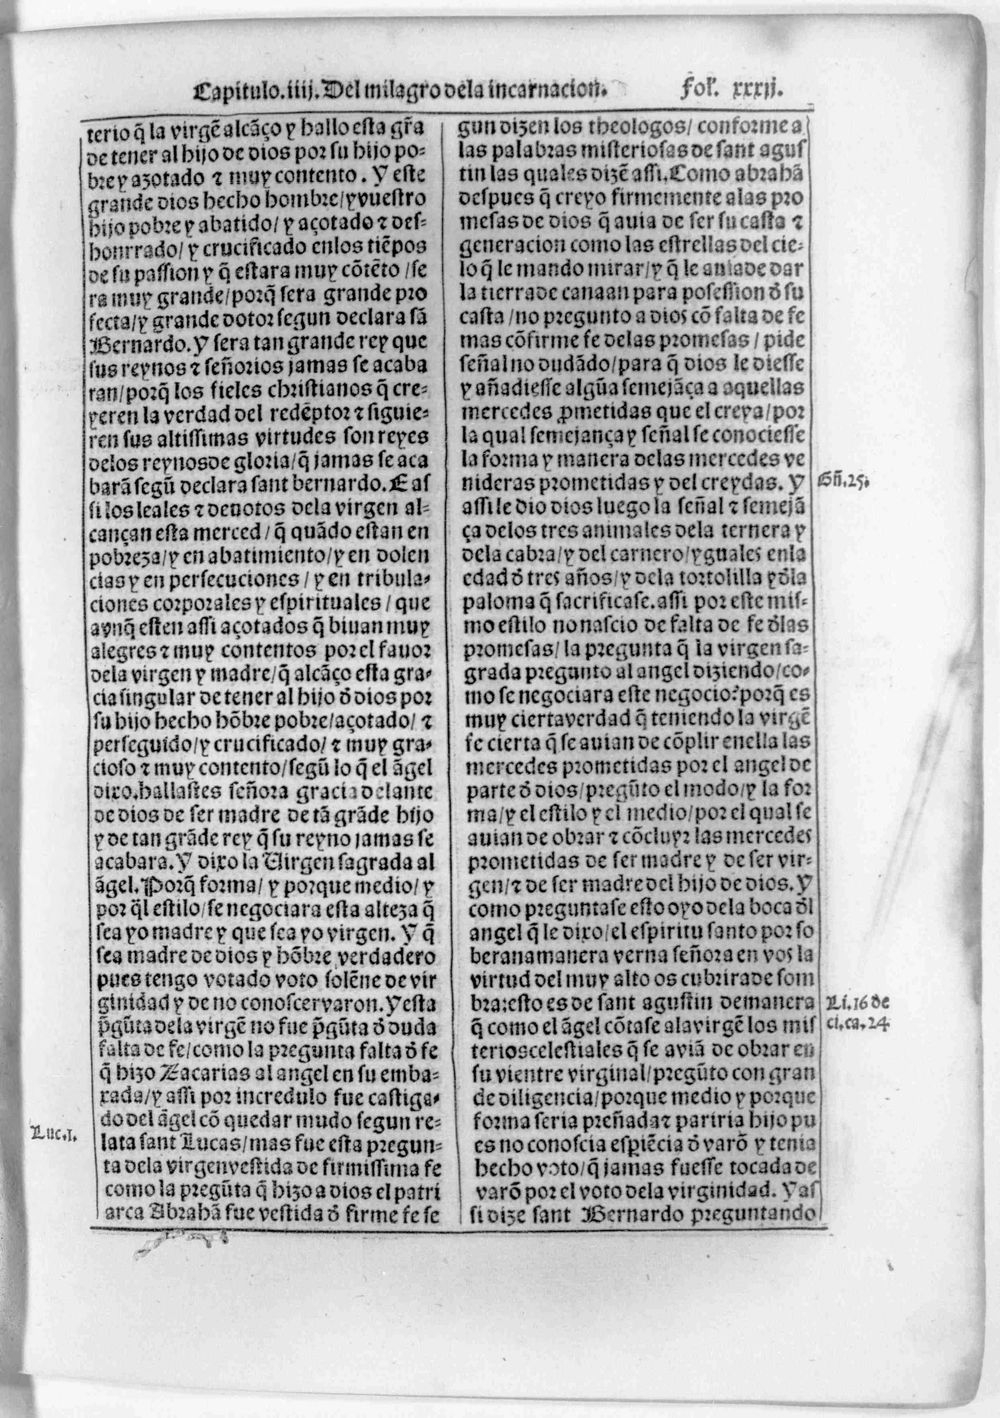 Capitulo.iiij.Del milagro dela incarnacion. Fol. xxxij.
terio q̃ la virgẽ alcãço y hallo esta gr̃a
de tener al hijo de dios por su hijo po-
bre y azotado ⁊ muy contento. Y este
grande dios hecho hombre/y vuestro
hijo pobre y abatido/y açotado ⁊ des-
honrrado/y crucificado enlos tiẽpos
de su passion y q̃ estara muy cõtẽto/se
ra muy grande/porq̃ sera grande pro
fecta/y grande dotor segun declara sã
Bernardo. Y sera tan grande rey que
sus reynos ⁊ señorios jamas se acaba
ran/porq̃ los fieles christianos q̃ cre-
yeren la verdad del redẽptor ⁊ siguie-
ren sus altissimas virtudes son reyes
delos reynosde gloria/q̃ jamas se aca
barã segũ declara sant bernardo. E as
si los leales ⁊ deuotos dela virgen al-
cançan esta merced/q̃ quãdo estan en
pobreza/y en abatimiento/y en dolen
cias y en persecuciones/y en tribula-
ciones corporales y espirituales/que
avnq̃ esten assi açotados q̃ biuan muy
alegres ⁊ muy contentos por el fauor
dela virgen y madre/q̃ alcãço esta gra-
cia singular de tener al hijo õ dios por
su hijo hecho hõbre pobre/açotado/⁊
perseguido/y crucificado/⁊ muy gra-
cioso ⁊ muy contento/segũ lo q̃ el ãgel
dixo.hallastes señora gracia delante
de dios de ser madre de tã grãde hijo
y de tan grãde rey q̃ su reyno jamas se
acabara. Y dixo la Uirgen sagrada al
ãgel. Porq̃ forma/y porque medio/y
por q̃l estilo/se negociara esta alteza q̃
sea yo madre y que sea yo virgen. Y q̃
sea madre de dios y hõbre verdadero
pues tengo votado voto solẽne de vir
ginidad y de no conoscer varon. Y esta
p̃gũta dela virgẽ no fue p̃gũta õ duda
falta de fe/como la pregunta falta õ fe
q̃ hizo Zacarias al angel en su emba-
xada/y assi por incredulo fue castiga-
do del ãgel cõ quedar mudo segun re-
lata sant Lucas/mas fue esta pregun-
ta dela virgenvestida de firmissima fe
como la pregũta q̃ hizo a dios el patri
arca Abrahã fue vestida õ firme fe se
Luc.1.
gun dizen los theologos/conforme a
las palabras misteriosas de sant agus
tin las quales dizẽ assi. Como abrahã
despues q̃ creyo firmemente alas pro
mesas de dios q̃ auia de ser su casta ⁊
generacion como las estrellas del cie-
lo q̃ le mando mirar/y q̃ le auia de dar
la tierra de canaan para posession õ su
casta/no pregunto a dios cõ falta de fe
mas cõ firme fe delas promesas/pide
señal no dudãdo/para q̃ dios le diesse
y añadiesse algũa semejãça a aquellas
mercedes ꝓmetidas que el creya/por
la qual semejança y señal se conociesse
la forma y manera delas mercedes ve
nideras prometidas y del creydas. Y
assi le dio dios luego la señal ⁊ semejã
ça delos tres animales dela ternera y
dela cabra/y del carnero/yguales enla
edad õ tres años/y dela tortolilla y õla
paloma q̃ sacrificase. assi por este mis-
mo estilo no nascio de falta de fe õlas
promesas/la pregunta q̃ la virgen sa-
grada pregunto al angel diziendo/co-
mo se negociara este negocio? porq̃ es
muy cierta verdad q̃ teniendo la virgẽ
fe cierta q̃ se auian de cõplir enella las
mercedes prometidas por el angel de
parte õ dios/pregũto el modo/y la for
ma/y el estilo y el medio/por el qual se
auian de obrar ⁊ cõcluyr las mercedes
prometidas de ser madre y de ser vir-
gen/⁊ de ser madre del hijo de dios. Y
como preguntase esto oyo dela boca õl
angel q̃ le dixo/el espiritu santo por so
berana manera verna señora en vos la
virtud del muy alto os cubrira de som
bra:esto es de sant agustin demanera
q̃ como el ãgel cõtase ala virgẽ los mis
terios celestiales q̃ se auiã de obrar en
su vientre virginal/pregũto con gran
de diligencia/porque medio y porque
forma seria preñada ⁊ pariria hijo pu
es no conoscia espiẽcia õ varõ y tenia
hecho voto/q̃ jamas fuesse tocada de
varõ por el voto dela virginidad. Y as
si dize sant Bernardo preguntando
Gñ.25.
Li.16 de
ci.ca.24